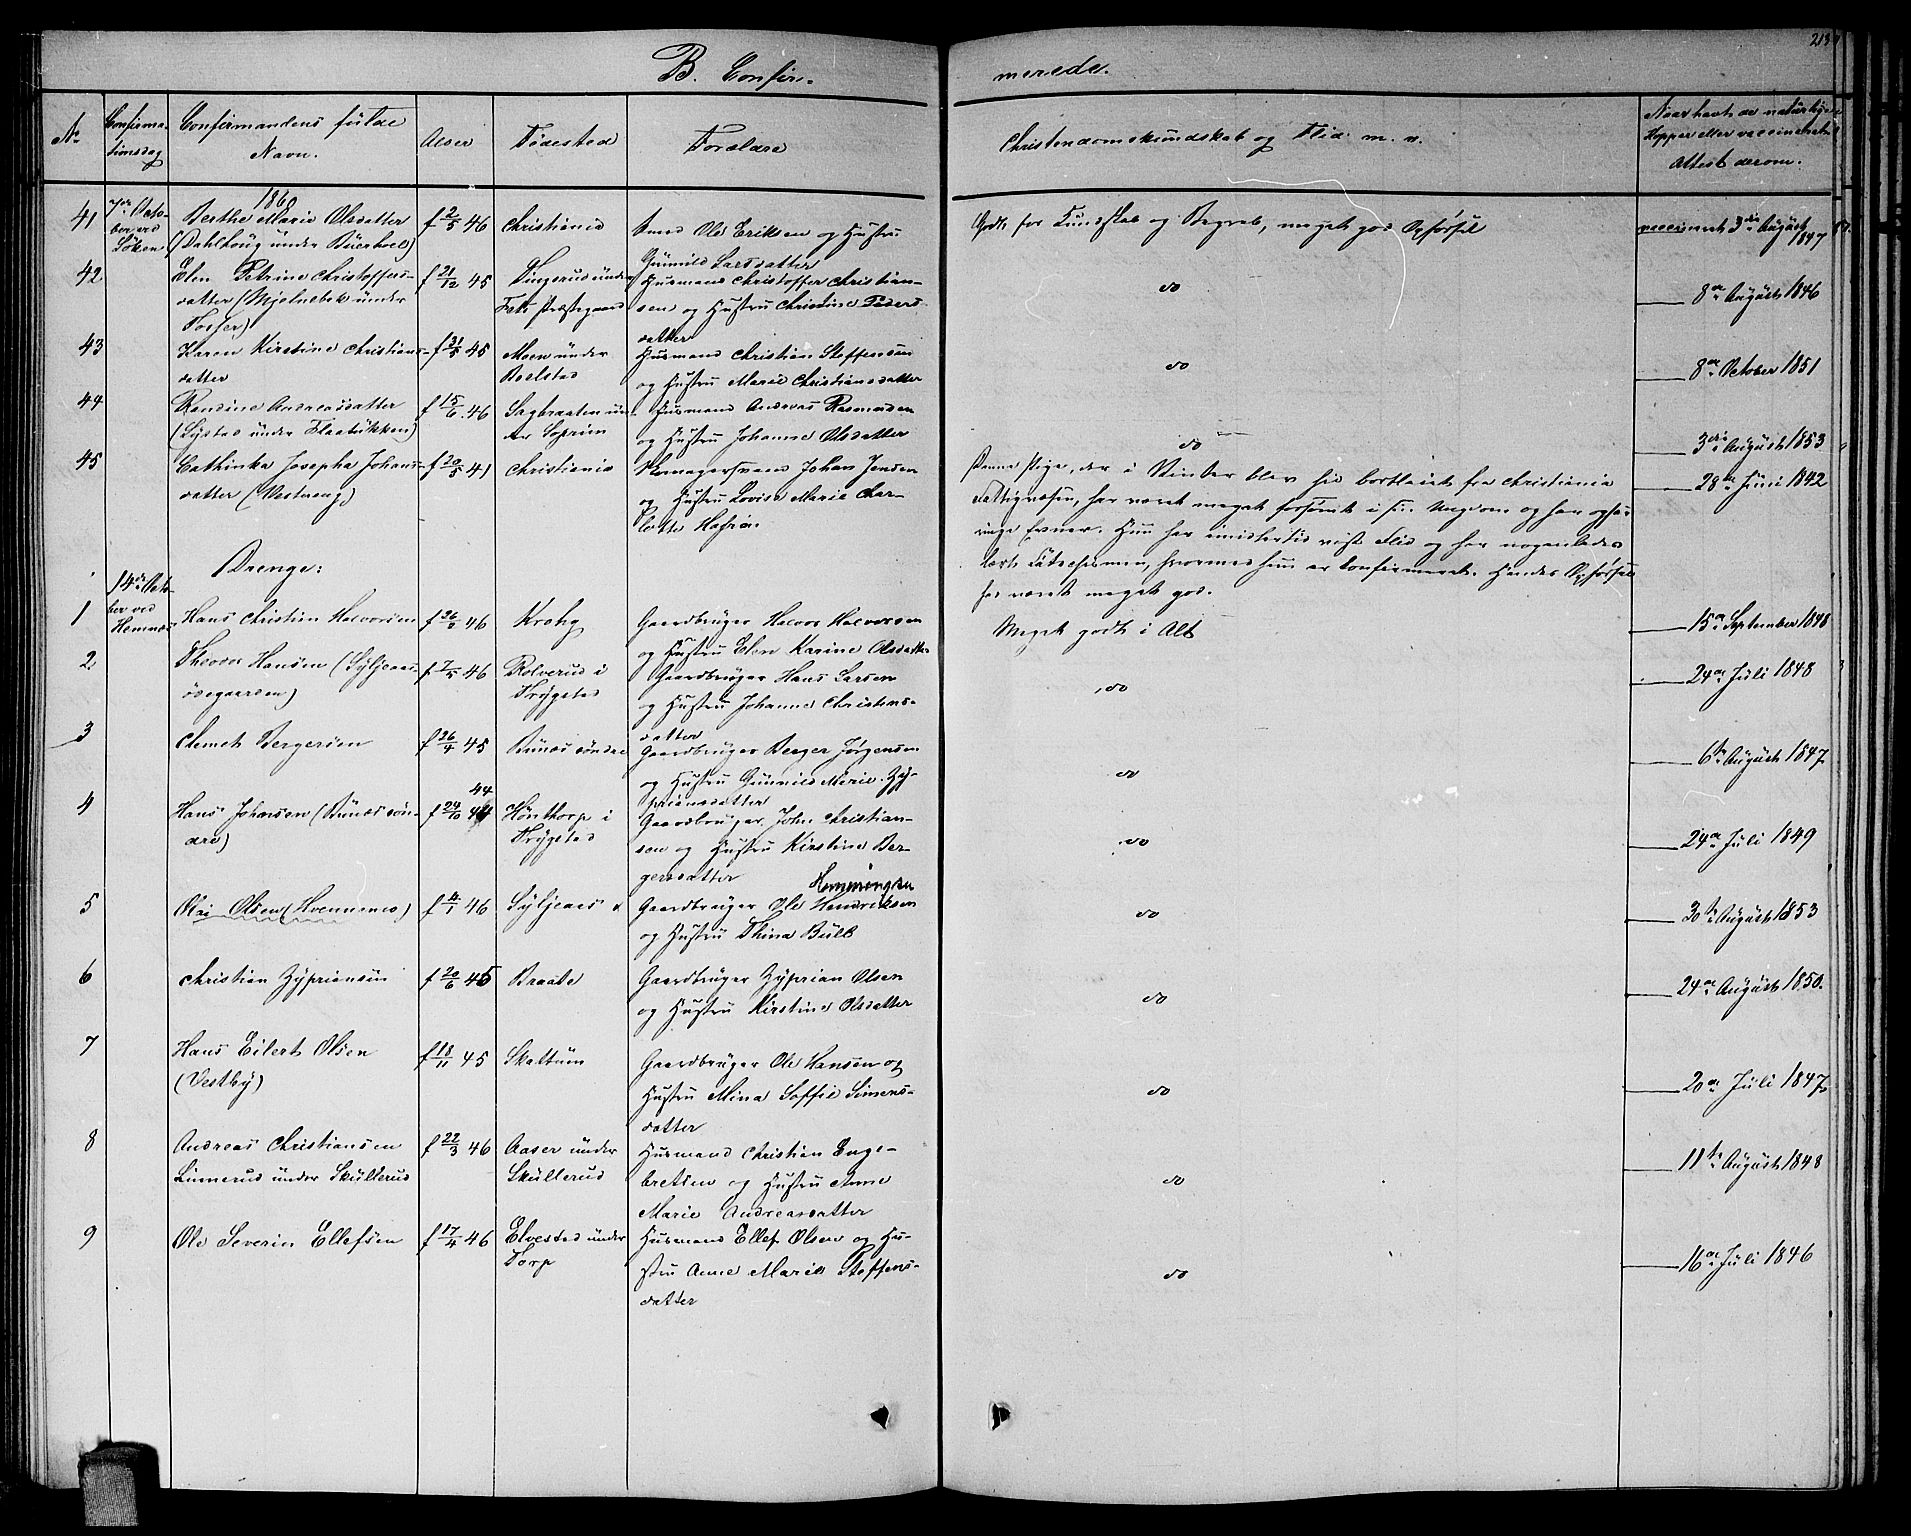 213
B. Confir-
merede.
No
Confirma-
tionsdag
Confirmandens fulde
Navn.
Alder
Fødested
Forældre
Christendomskundskab og Flid m. v.
Naar havt de naturlige
Kopper eller vaccineret
Attest derom.
1860
7de Octo-
ber ved
Søken
41
Berthe Marie Olsdatter
(Dahlhoug under Buerhoel)
f 2/5 46
Christiania
Smed Ole Eriksen og Hustru
Gunnild Larsdatter
Godt for Kundskab og Begreb, meget god Opførsel
vaccineret 3die August
1847
42
Elen Petrine Christoffers-
datter (Mjelnebek under
Tosser)
f 21/12 45
Dingsrud under
Fets Præstegaard
Husmand Christoffer Christian-
sen og Hustru Christine Peders
datter
do
8de August 1846
43
Karen Kirstine Christians-
datter
f 31/5 45
Moen under
Boelstad
Husmand Christian Steffensen
og Hustru Marie Christiansdatter
do
8de October 1851
44
Randine Andreasdatter
(Lystad under Flaatukken)
f 15/6 46
Sagbraaten un-
der Soprim
Husmand Andreas Rasmusen
og Hustru Johanne Olsdatter
do
3die August 1853
45
Cathinka Josepha Johans-
datter (Vestreng)
f 20/5 41
Christiania
Johan Jensen
og Hustru Lovise Marie Char-
lotte
Denne Pige, der i Vinter blev hid bortleiet fra Christiania
Fattigvæsen, har været meget forsømt i sin Ungdom og har ogsaa
ringe Evner. Hun har imidlertid vist Flid og har nogenledes
lært Catechismen, hvormed hun er konfirmeret. Hendes Opførsel
har været meget god.
28de Juni 1842
Drenge:
14de Octo-
ber ved
Hemnæs
1
Hans Christian Halvorsen
f 26/5 46
Krohg
Gaardbruger Halvor Halvorsen
og Hustru Elen Karine Olsdatter
Meget godt i Alt
15de September 1848
2
Theodor Hansen (Syljeaas-
ødegaarden)
f 7/5 46
Rolverud i
Trygstad
Gaardbruger Hans Larsen
og Hustru Johanne Christens-
datter
do
24de Juli 1848
3
Clemet Bergersen
f 26/4 45
Bunæs søndre
Gaardbruger Berger Jørgensen
og Hustru Gunnild Marie Zy-
priansdatter
do
6te August 1847
4
Hans Johnsen (Bunæs søn-
dre)
44
f 24/10 44
Hønthorp i
Trygstad
Gaardbruger John Christian-
sen og Hustru Kirstine Ber-
gersdatter
do
24de Juli 1849
5
Olai Olsen (Hvennemo)
f 11/1 46
Syljeaas
Hemmingsen
Gaardbruger Ole Hendriksen
og Hustru Thina Bull
do
30te August 1853
6
Christian Zypriansen
f 20/6 45
Braate
Gaardbruger Zyprian Olsen
og Hustru Kirstine Olsdatter
do
24de August 1850.
7
Hans Eilert Olsen
(Vestby)
f 18/11 45
Skattum
Gaardbruger Ole Hansen og
Hustru Mina Soffie Simens-
datter
do
20de Juli 1847
8
Andreas Christiansen
Linnerud under Skullerud
f 22/3 46
Aaser under
Skullerud
Husmand Christian Enge-
bretsen og Hustru Anne
Marie Andreasdatter
do
11te August 1848
9
Ole Severin Ellefsen
f 17/4 46
Elvestad under
Torp
Husmand Ellef Olsen og Hu-
stru Anne Marie Steffens-
datter
do
16de Juli 1846